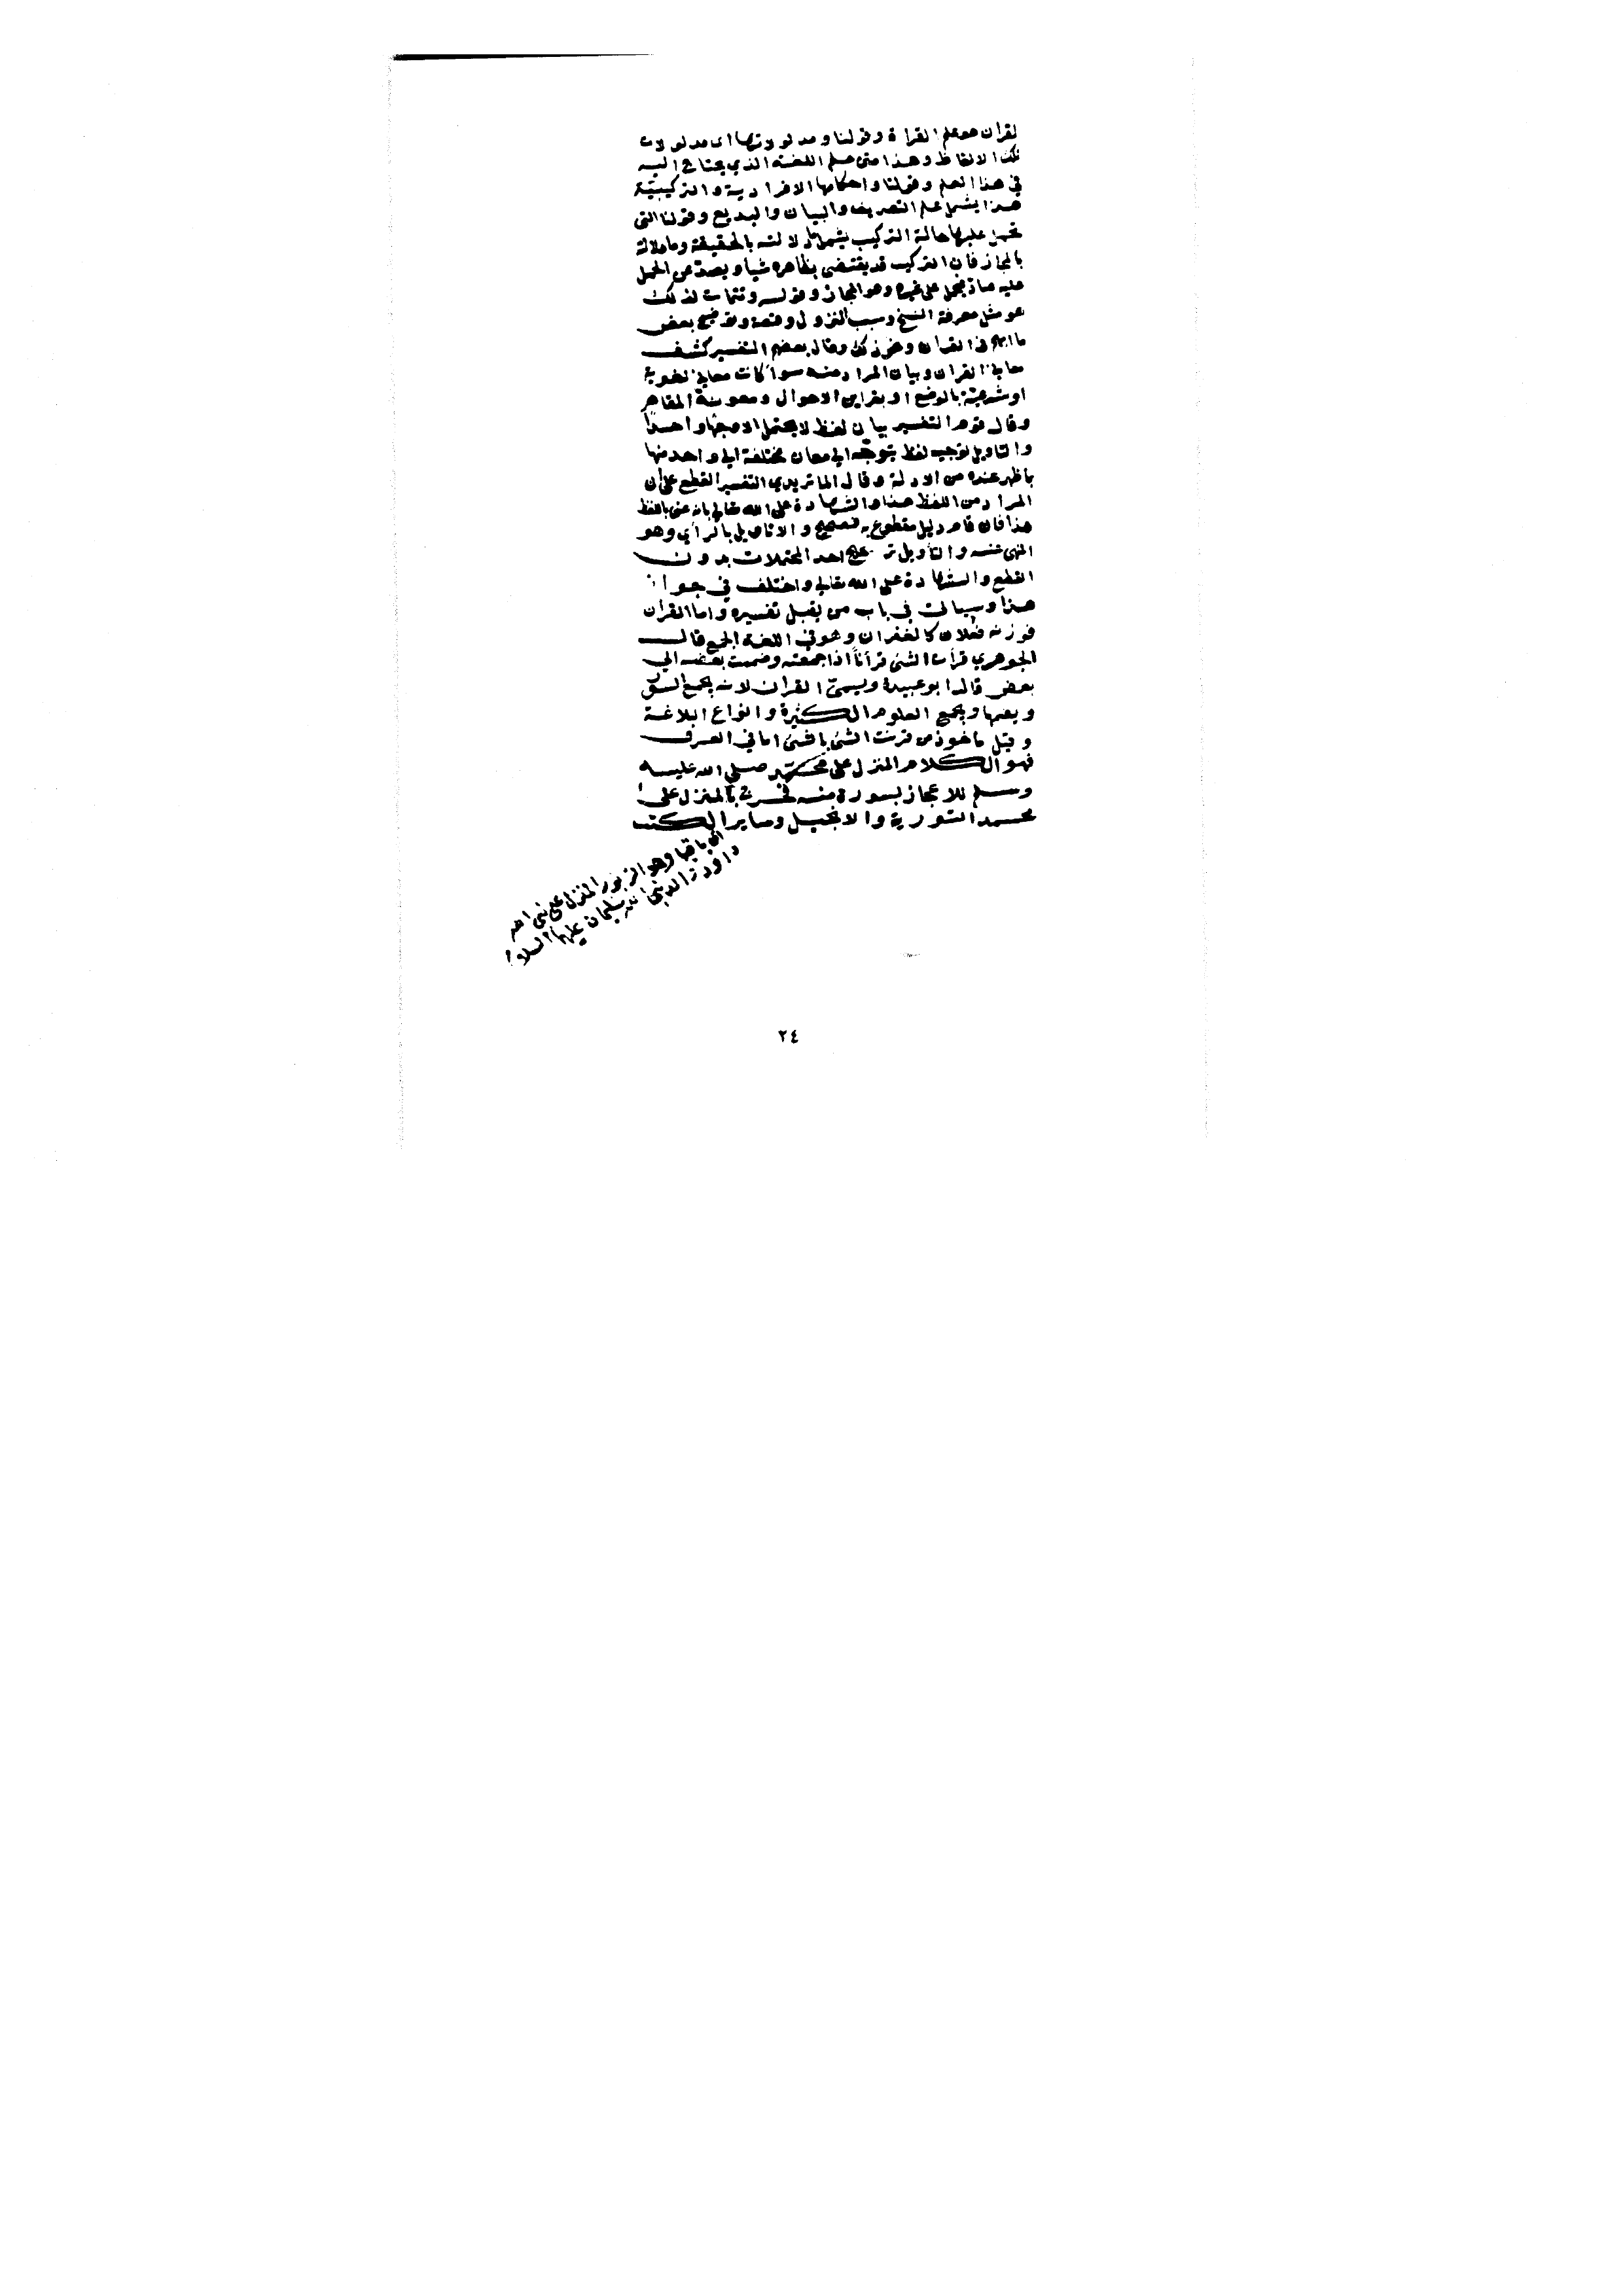 لقران هو علم القراة وقولنا ومدلولاتها اى مدلولات
تلك الالفاظ وهذا متن علم اللغة الذي يحتاج اليه
في هذا العلم وقولنا واحكامها الافرادية والتركيبيّة
هذا يشمل علم التصريف والبيان والبديع وقولنا التى
تحمل عليها حالة التركيب يشمل ما دلالته بالحقيقة وما دلالة
بالمجاز فان التركيب قد يقتضى بظاهره شيا ويصد عن الحمل
عليه صاد فيحمل على غيره وهو المجاز وقوله وتتمات لذلك
هو مثل معرفة النسخ وسبب النزول وقصة توضح بعض
ما ابهم في القران ونحو ذلك وقال بعضهم التفسير كشف
معاني القران وبيان المراد منه سوآ كانت معاني لغوية
او شرعيّة بالوضع او بقراين الاحوال ومعونة المقام
وقال قوم التفسير بيان لفظ لا يحتمل الا وجها واحداً
والتاويل توجيه لفظ يتوجّه الى معان مختلفة الى واحد منها
بما ظهر عنده من الادلة وقال الماتريدي التفسير القطع على ان
المراد من اللفظ هذا والشهادة على الله تعالى بانه عنى باللفظ
هذا فان قام دليل مقطوع به فصحيح والا تاويل بالرأي وهو
المنهى عنه والتأويل ترجيح احد المحتملات بدون
القطع والشهادة على الله تعالى واختلف في جواز
هذا وسياتى في باب من يقبل تفسيره واما القران
فوزنه فعلان كالغفران وهو في اللغة الجمع قال
الجوهري قرأت الشئ قرآناً اذا جمعته وضممت بعضه الى
بعض قال ابو عبيدة وسمى القران لانه يجمع السور
ويضمها ويجمع العلوم الكثيرة وانواع البلاغة
وقيل ماخوذ من قرنت الشئ بالشئ اما في العرف
فهو الكلام المنزل على محمد صلى الله عليه
وسلم للاعجاز بسورة منه فخرج بالمنزل على
محمد التورية والانجيل وساير الكتب
اى باقيها وهو الزبور المنزل على نبى الله
داود والد نبى الله سليمان عليهما السلام
٢٤